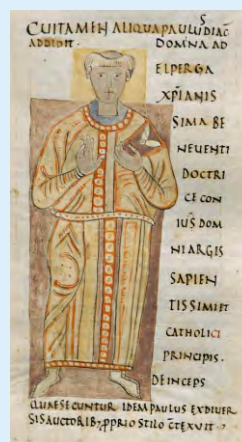 CUI TAMEN ALIQUA PAULUS DIAC
ADDIDIT. DOMNA AD
ELPERGA
XPIANIS
SIMA BE
NEUENTI
DOCTRI
CE CON
IUS DOM
NI ARGIS
SAPIEN
TISSIMI ET
CATHOLICI
PRINCIPIS.
DEINCEPS
QUAE SECUNTUR IDEM PAULUS EX DIUER
SIS AUCTORIB; PPRIO STILO CTEXUIT